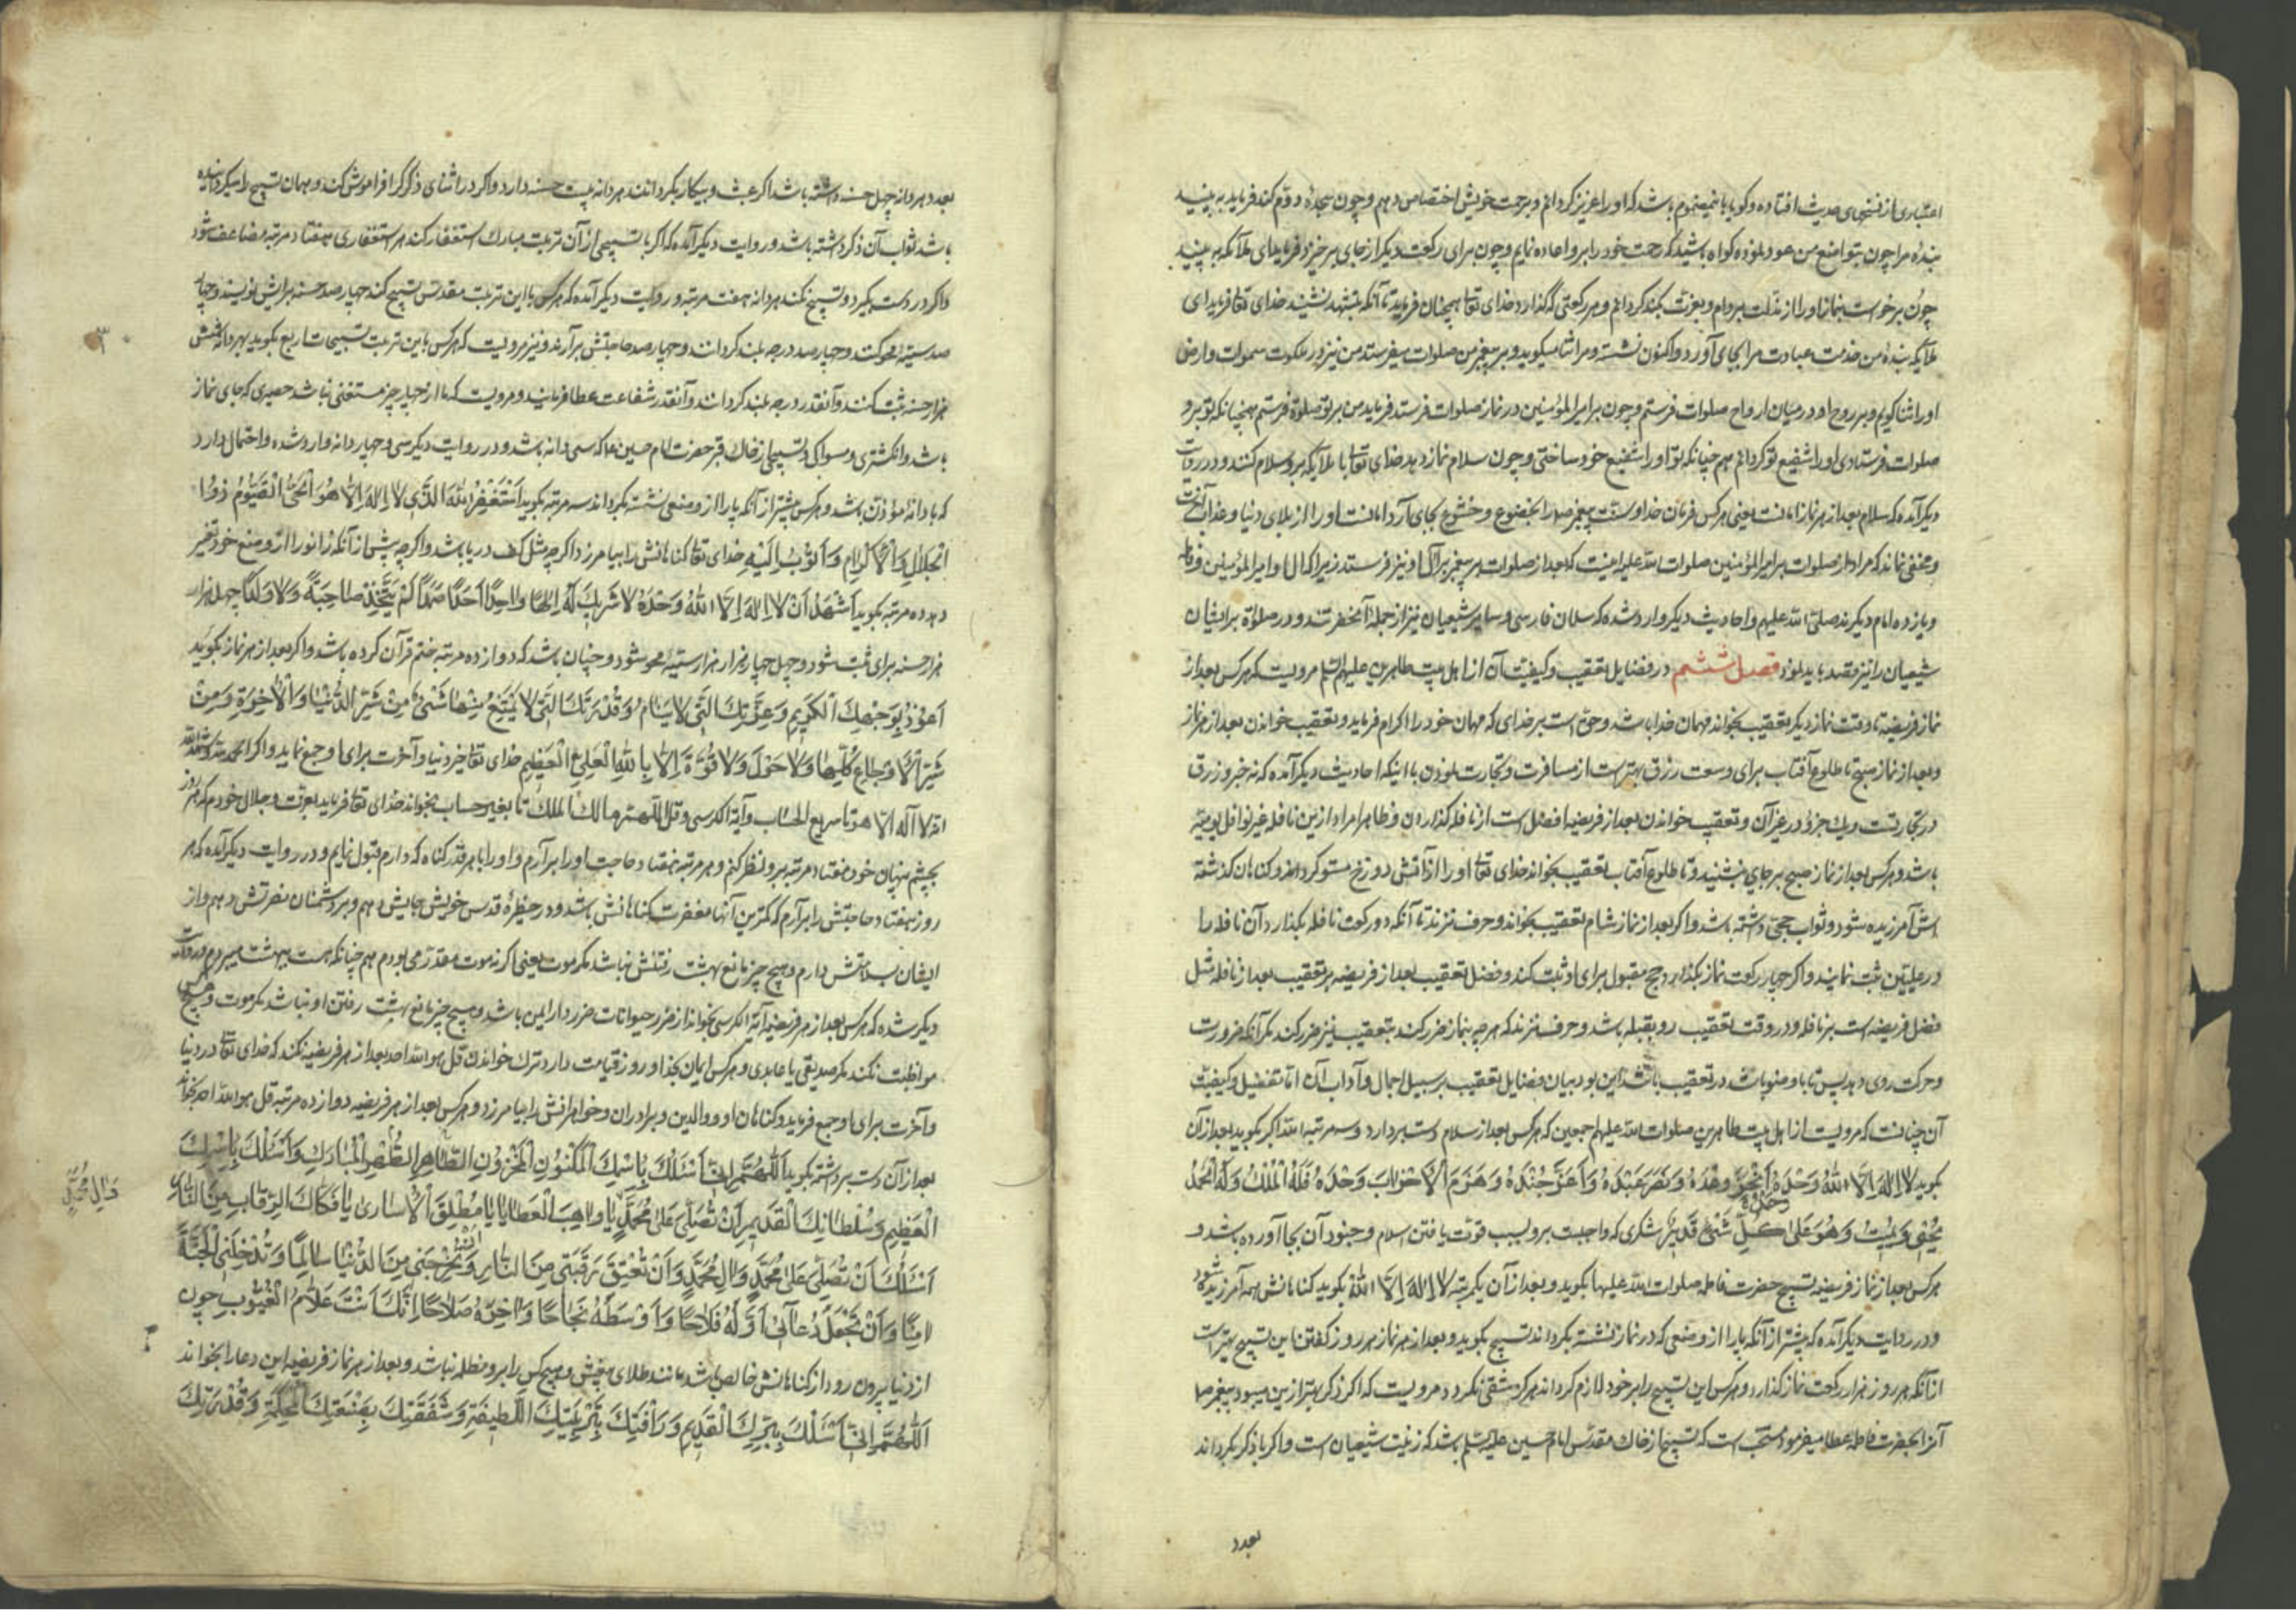 اعتباری از نسخهای حدیث افتاده و گویا باین مضموم باشد که او را عزیز کردانم و برحمت خویش اختصاص دهم و چون سجدۀ دوم کند فرماید به بینید
بندۀ مرا چون بتواضع من عود نموده کواه باشید که رحمت خود را برو اعاده نمایم و چون برای رکعت دیکر از جای برخیزد فرماید ای ملآیکه به بینید
چون برخواست بنماز او را از مذلت بردارم و بعزت بلند کردانم و هر رکعتی که گذارد خدای تعا همچنان فرماید تا آنکه بتشهد نشیند خدای تعا فرماید ای
ملآیکه بندۀ من خدمت عبادت مرا بجای آورد و اکنون نشسته و مرا ثنا میکوید و بر پیغمبر من صلوات میفرستد من نیز در ملکوت سموات و ارض
او را ثنا کویم و بر روح او در میان ارواح صلوات فرستم و چون بر امیرالمؤمنین در نماز صلوات فرستد فرماید من بر تو صلوة فرستم همچنانکه تو برو
صلوات فرستادی او را شفیع تو کردانم هم چنانکه تو او را شفیع خود ساختی و چون سلام نماز دهد خدای تعا با ملآیکه برو سلام کنند و در روایت
دیکر آمده که سلام بعد از هر نماز امانست یعنی هر کس فرمان خدا و سنت پیغمبر را بخضوع و خشوع بجای آرد امانست او را از بلای دنیا و عذاب آخرت
و مخفی نماند که مراد از صلوات بر امیرالمؤمنین صلوات الله علیه اینست که بعد از صلوات بر پیغمبر بر آل او نیز فرستد زیرا که آل او امیرالمؤمنین و فاطمه
و یازده امام دیکرند صلی الله علیهم و احادیث دیکر وارد شده که سلمان فارسی و سایر شیعیان نیز از جملۀ آنحضرتند و در صلوة بر ایشان
شیعیان را نیز مقصد باید نمود فصل ششم در فضایل تعقیب و کیفیت آن از اهل بیت طاهرین علیهم السلم مرویست که هر کس بعد از
نماز فریضه تا وقت نماز دیکر تعقیب بخواند مهمان خدا باشد و حق است بر خدای که مهمان خود را اکرام فرماید و تعقیب خواندن بعد از هر نماز
و بعد از نماز صبح تا طلوع آفتاب برای وسعت رزق بهتر است از مسافرت و تجارت نمودن با اینکه احادیث دیکر آمده که نه جزو رزق
در تجارتست و یک جزو در غیر آن و تعقیب خواندن بعد از فریضه افضل است از نافله گذاردن و ظاهرا مراد ازین نافله غیر نوافل یومیه
باشد و هر کس بعد از نماز صبح بر جای بنشیند و تا طلوع آفتاب تعقیب بخواند خدای تعا او را از آتش دوزخ مستور کرداند و کناهان کذشته
اش آمرزیده شود و ثواب حجی داشته باشد و اکر بعد از نماز شام تعقیب بخواند و حرف نزند تا آنکه دو رکعت نافله بکذارد آن نافله را
در علیین ثبت نمایند و اکر چهار رکعت نماز بکذارد حج مقبول برای او ثبت کند و فضل تعقیب بعد از فریضه بر تعقیب بعد از نافله مثل
فضل فریضه است بر نافله و در وقت تعقیب رو بقبله باشد و حرف نزند که هر چه بنماز ضرر کند بتعقیب نیز ضرر کند مکر آنکه ضرورت
و حرکت روی دهد پس تا با وضو باشد در تعقیب باشد این بود بیان فضایل تعقیب بر سبیل اجمال و آداب آن اما تفصیل و کیفیت
آن چنانست که مرویست از اهل بیت طاهرین صلوات الله علیهم اجمعین که هر کس بعد از سلام دست بردارد و سه مرتبه الله اکبر بکوید بعد از آن
بکوید لا اله الا الله وحده انجز وعده ونصر عبده واعز جنده وهزم الاحزاب وحده فله الملک وله الحمد
یحیی ویمیت وهو علی کل شیء قدیر شکری که واجبست برو بسبب قوت یافتن اسلام و جنود آن بجا آورده باشد و
هر کس بعد از نماز فریضه تسبیح حضرت فاطمه صلوات الله علیها بکوید و بعد از آن یکمرتبه لا اله الا الله بکوید کناهانش همه آمرزیده شود
و در روایت دیکر آمده که پیشتر از آنکه پا را از وضعی که در نماز نشسته بکرداند تسبیح بکوید و بعد از هر نماز هر روز کفتن این تسبیح بهتر است
از آنکه هر روز هزار رکعت نماز کذارد و هر کس این تسبیح را بر خود لازم کرداند هرکز شقی نکردد و مرویست که اکر ذکر بهتر ازین میبود پیغمبر ص
آنرا بحضرت فاطمه عطا میفرمود و مستحب است که تسبیح از خاک مقدس امام حسین علیه السلم باشد که زینت شیعیان است و اکر با ذکر بکرداند
بعدد
بعدد هر دانه چهل حسنه داشته باشد اکر عبث و بیکار بکردانند هر دانه بیست حسنه دارد و اکر در اثنای ذکر کر افراموش کند و همان تسبیح را میکردانیده
باشد ثواب آن ذکر داشته باشد و روایت دیکر آمده که اکر با تسبیحی از آن تربت مبارک استغفار کند هر استغفاری هفتاد مرتبه مضاعف شود
و اکر در دست بکیرد و تسبیح نکند هر دانه هفت مرتبه و روایت دیکر آمده که هر کس با این تربت مقدس تسبیح کند چهار صد حسنه برایش نویسند و چهار
صد سیئه محو کنند و چهار صد درجه بلند کردانند و چهار صد حاجتش برآرند و نیز مرویست که هر کس باین تربت تسبیحات اربع بکوید بهر دانه شش
هزار حسنه ثبت کنند و آنقدر درجه بلند کردانند و آنقدر شفاعت عطا فرمایند و مرویست که ما از چهار چیز مستغنی نباشد حصیری که جای نماز
باشد و انکشتری و مسواکی و تسبیحی از خاک قبر حضرت امام حسین ع که سی دانه باشد و در روایت دیکر سی و چهار دانه وارد شده و احتمال دارد
که با دانۀ مؤذن باشد و هر کس پیشتر از آنکه پا را از وضعی نشسته بکرداند سه مرتبه بکوید استغفر الله الذی لا اله الا هو الحی القیوم ذو
الجلال والاکرام واتوب الیه خدای تعا کناهانش را بیامرزد اکر چه مثل کف دریا باشد و اکر چه پیش از آنکه زانو را از وضع خود تغیر
دهد ده مرتبه بکوید اشهد ان لا اله الا الله وحده لا شریک له الها واحدا احدا صمدا لم یتخذ صاحبة ولا ولدا چهل هزار
هزار حسنه برای ثبت شود و چهل چهار هزار هزار سیئه محو شود و چنان باشد که دوازده مرتبه ختم قرآن کرده باشد و اکر بعد از هر نماز بکوید
اعوذ بوجهک الکریم وعزتک التی لا ترام وقدرتک التی لا یمتنع منها شیء من شر الدنیا والآخرة ومن
شر الاوجاع کلها ولا حول ولا قوة الا بالله العلی العظیم خدای تعا خیر دنیا و آخرت برای او جمع نماید و اکر الحمد و شهد الله
انه لا آله الا هو تا سریع الحساب و آیة الکرسی و قل اللهم مالک الملک تا بغیر حساب بخواند خدای تعا فرماید بعزت و جلال خودم که هر روز
بچشم پنهان خود هفتاد مرتبه برو نظر کنم و هر مرتبه هفتاد حاجت او را برآرم و او را با هر قدر کناه که دارم قبول نمایم و در روایت دیکر آمده که هر
روز هفتاد حاجتش را برآرم که کمترین آنها مغفرت کناهانش باشد و در حظیرۀ قدس خویش جایش دهم و بر دشمنان نصرتش دهم و از
ایشان بسلامتش دارم و هیچ چیز مانع بهشت رفتنش نباشد مکر موت یعنی اکر نه موت مقدر می بودم هم چنانکه هست ببهشت میبردم و در روایت
دیکر شده که هر کس بعد از هر فریضه آیة الکرسی بخواند از ضرر حیوانات ضرر دار ایمن باشد و هیچ چیز مانع بهشت رفتن او نباشد مکر موت و هیچ کس
مواظبت نکند مکر صدیقی یا عابدی و هر کس ایمان بخدا و روز قیامت دارد ترک خواندن قل هو الله احد بعد از هر فریضه نکند که خدای تعا در دنیا
و آخرت برای او جمع فرماید و کناهان او و والدین و برادران و خواهرانش را بیامرزد و هر کس بعد از هر فریضه دوازده مرتبه قل هو الله احد بخواند
بعد از آن دست برداشته بکوید اللهم انی اسئلک باسمک المکنون المخزون الطاهر الطهر المبارک واسئلک باسمک
العظیم وسلطانک القدیم ان تصلی علی محمد یا واهب العطایا یا مطلق الاساری یا فکاک الرقاب من النار
وال محمد
اسئلک ان تصلی علی محمد وال محمد وان تعتق رقبتی من النار وتخرجنی من الدنیا سالما وتدخلنی الجنة
امنا وان تجعل دعائی اوله فلاحا واوسطه نجاحا واخره صلاحا انک انت علام الغیوب چون
از دنیا بیرون رود از کناهانش خالص باشد مانند طلای بیغش و هیچکس را برو مظلمه نباشد و بعد از هر نماز فریضه این دعا را بخواند
اللهم انی اسئلک ببرک القدیم ورأفتک بتربیتک اللطیفة وشفقتک بصنعتک المحکمة وقدرتک